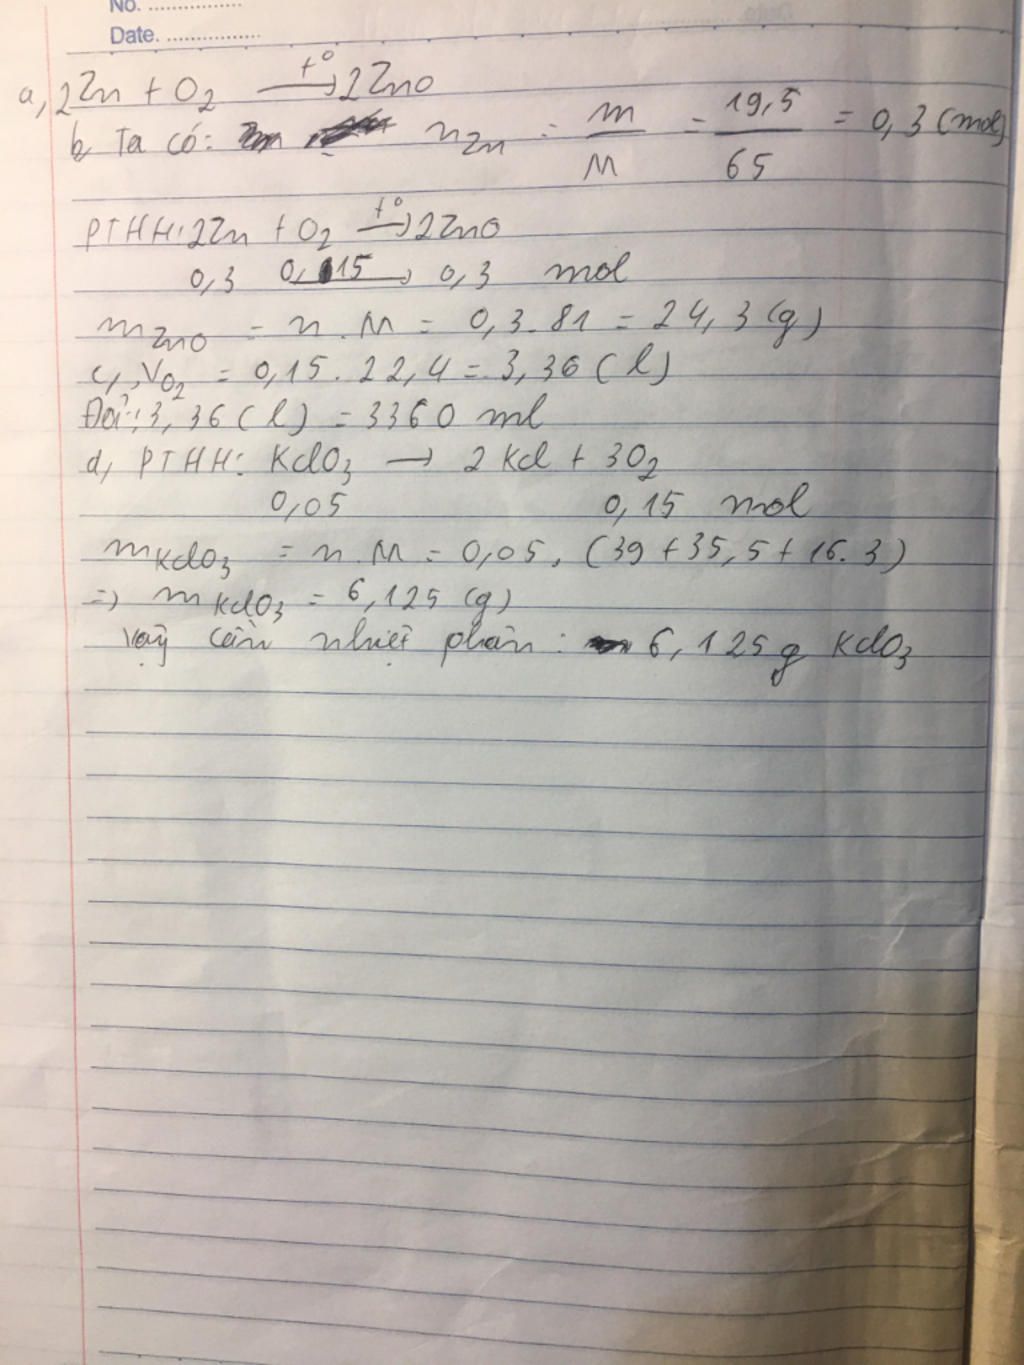 No. ...............
Date. ...............
a, 2Zn + O2 t° → 2ZnO
b, Ta có: nZn = m/M = 19,5/65 = 0,3 (mol)
PTHH: 2Zn + O2 t° → 2ZnO
0,3 0,15 → 0,3 mol
mZnO = n.M = 0,3.81 = 24,3 (g)
c, VO2 = 0,15.22,4 = 3,36 (l)
Đổi: 3,36 (l) = 3360 ml
d, PTHH: KClO3 → 2KCl + 3O2
0,05 0,15 mol
mKClO3 = n.M = 0,05.(39+35,5+16.3)
=> mKClO3 = 6,125 (g)
Vậy cần nhiệt phân: 6,125g KClO3